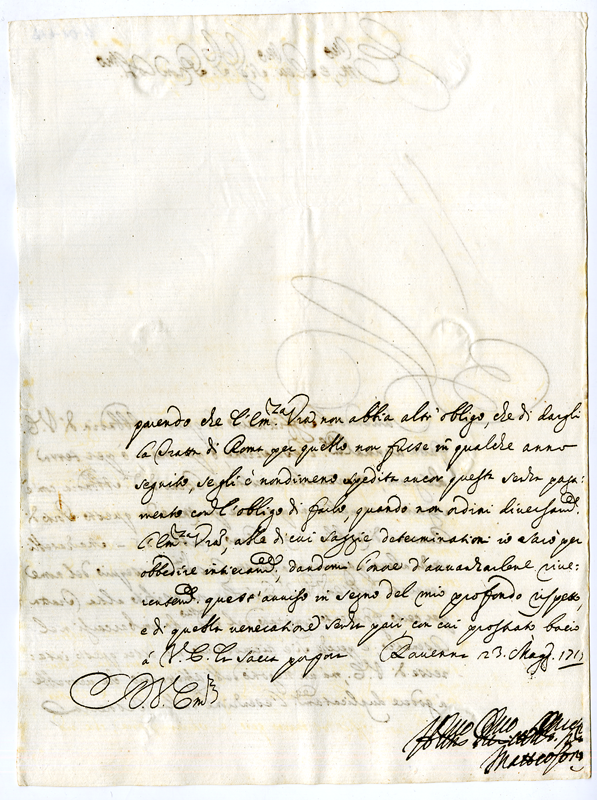 parendo che l'Em.za Vra non abbia altr'obligo, che di dargli
la Tratta di Roma per quello non fusse in qualche anno
seguito, se gli è nondimeno spedita ancor questa senza paga-
mento con l'obligo di farlo, quando non ordini diversam.e
l'Em.za Vra, alle di cui saggie determinationi io sarò per
obbedire interam.e, dandomi l'onore d'avvanzarlene rive-
rentem.e quest'avviso in segno del mio profondo rispetto,
e di quella veneratione senza pari con cui prostrato bacio
à V. E. la sacra porpora Ravenna 23. Magg. 1711
D. V. Em.za